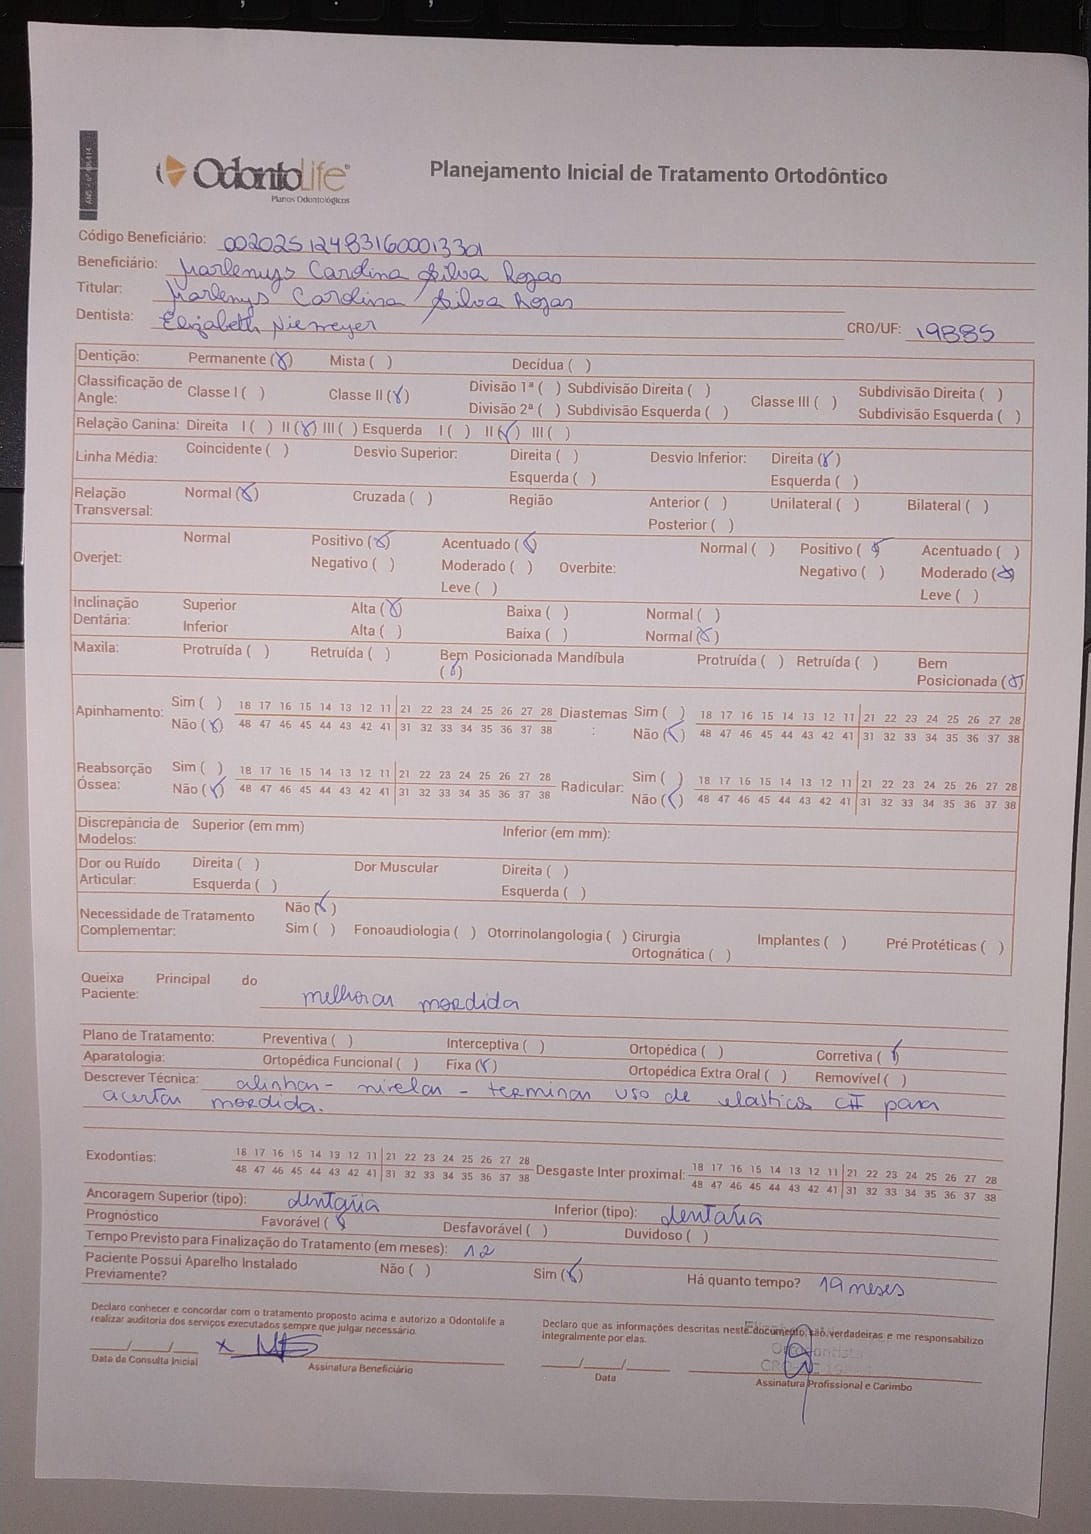 OdontoLife
Planos Odontológicos
Planejamento Inicial de Tratamento Ortodôntico
Código Beneficiário: 00202512483160001330
Beneficiário: Marlenys Carolina Silva Rojas
Titular: Marlenys Carolina Silva Rojas
Dentista: Elizabeth Niemeyer CRO/UF: 19885
Dentição: Permanente (X) Mista ( ) Decídua ( )
Classificação de Angle: Classe I ( ) Classe II (X) Divisão 1ª ( ) Subdivisão Direita ( ) Classe III ( ) Subdivisão Direita ( )
Divisão 2ª ( ) Subdivisão Esquerda ( ) Subdivisão Esquerda ( )
Relação Canina: Direita I ( ) II (X) III ( ) Esquerda I ( ) II (X) III ( )
Linha Média: Coincidente ( ) Desvio Superior: Direita ( ) Desvio Inferior: Direita (X)
Esquerda ( ) Esquerda ( )
Relação Transversal: Normal (X) Cruzada ( ) Região Anterior ( ) Unilateral ( ) Bilateral ( )
Posterior ( )
Overjet: Normal Positivo (X) Acentuado (X) Overbite: Normal ( ) Positivo (X) Acentuado ( )
Negativo ( ) Moderado ( ) Negativo ( ) Moderado (X)
Leve ( ) Leve ( )
Inclinação Dentária: Superior Alta (X) Baixa ( ) Normal ( )
Inferior Alta ( ) Baixa ( ) Normal (X)
Maxila: Protruída ( ) Retruída ( ) Bem Posicionada (X) Mandíbula Protruída ( ) Retruída ( ) Bem Posicionada (X)
Apinhamento: Sim ( ) 18 17 16 15 14 13 12 11 21 22 23 24 25 26 27 28 Diastemas : Sim ( ) 18 17 16 15 14 13 12 11 21 22 23 24 25 26 27 28
Não (X) 48 47 46 45 44 43 42 41 31 32 33 34 35 36 37 38 Não (X) 48 47 46 45 44 43 42 41 31 32 33 34 35 36 37 38
Reabsorção Óssea: Sim ( ) 18 17 16 15 14 13 12 11 21 22 23 24 25 26 27 28 Radicular: Sim ( ) 18 17 16 15 14 13 12 11 21 22 23 24 25 26 27 28
Não (X) 48 47 46 45 44 43 42 41 31 32 33 34 35 36 37 38 Não (X) 48 47 46 45 44 43 42 41 31 32 33 34 35 36 37 38
Discrepância de Modelos: Superior (em mm) Inferior (em mm):
Dor ou Ruído Articular: Direita ( ) Dor Muscular Direita ( )
Esquerda ( ) Esquerda ( )
Necessidade de Tratamento Complementar: Não (X)
Sim ( ) Fonoaudiologia ( ) Otorrinolangologia ( ) Cirurgia Ortognática ( ) Implantes ( ) Pré Protéticas ( )
Queixa Principal do Paciente: melhorar mordida
Plano de Tratamento: Preventiva ( ) Interceptiva ( ) Ortopédica ( ) Corretiva (X)
Aparatologia: Ortopédica Funcional ( ) Fixa (X) Ortopédica Extra Oral ( ) Removível ( )
Descrever Técnica: alinhar - nivelar - terminar uso de elasticos CII para
acertar mordida.
Exodontias: 18 17 16 15 14 13 12 11 21 22 23 24 25 26 27 28 Desgaste Inter proximal: 18 17 16 15 14 13 12 11 21 22 23 24 25 26 27 28
48 47 46 45 44 43 42 41 31 32 33 34 35 36 37 38 48 47 46 45 44 43 42 41 31 32 33 34 35 36 37 38
Ancoragem Superior (tipo): dentária Inferior (tipo): dentaria
Prognóstico Favorável (X) Desfavorável ( ) Duvidoso ( )
Tempo Previsto para Finalização do Tratamento (em meses): 12
Paciente Possui Aparelho Instalado Previamente? Não ( ) Sim (X) Há quanto tempo? 19 meses
Declaro conhecer e concordar com o tratamento proposto acima e autorizo a Odontolife a
realizar auditoria dos serviços executados sempre que julgar necessário.
Declaro que as informações descritas neste documento, são verdadeiras e me responsabilizo
integralmente por elas.
___/___/___ x
Data da Consulta Inicial Assinatura Beneficiário
___/___/___
Data Assinatura Profissional e Carimbo